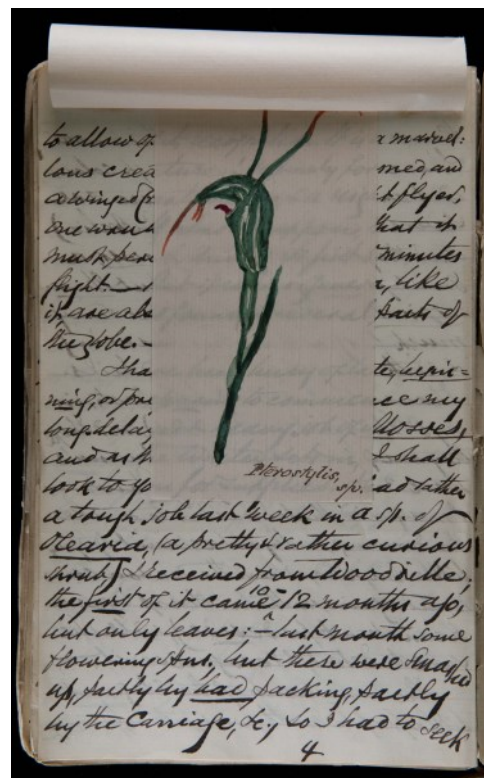 to allow of a marvel:
lous crea med, and
a winged t flyer,
one wou that it
must per minutes
flight.— , like
it, are ab parts of
the globe.—
I ha begin=
ning, or ce my
long dela Mosses,
and as I shall
look to yo had rather
Pterostylis,
sp.
a tough job last week in a sp. of
Olearia, (a pretty & rather curious
shrub,) received from Woodville;
the first of it came 10-12 months ago,
but only leaves:— last month some
flowering spns. but these were smashed
up, partly by bad packing, partly
by the Carriage, &c., so I had to seek
4